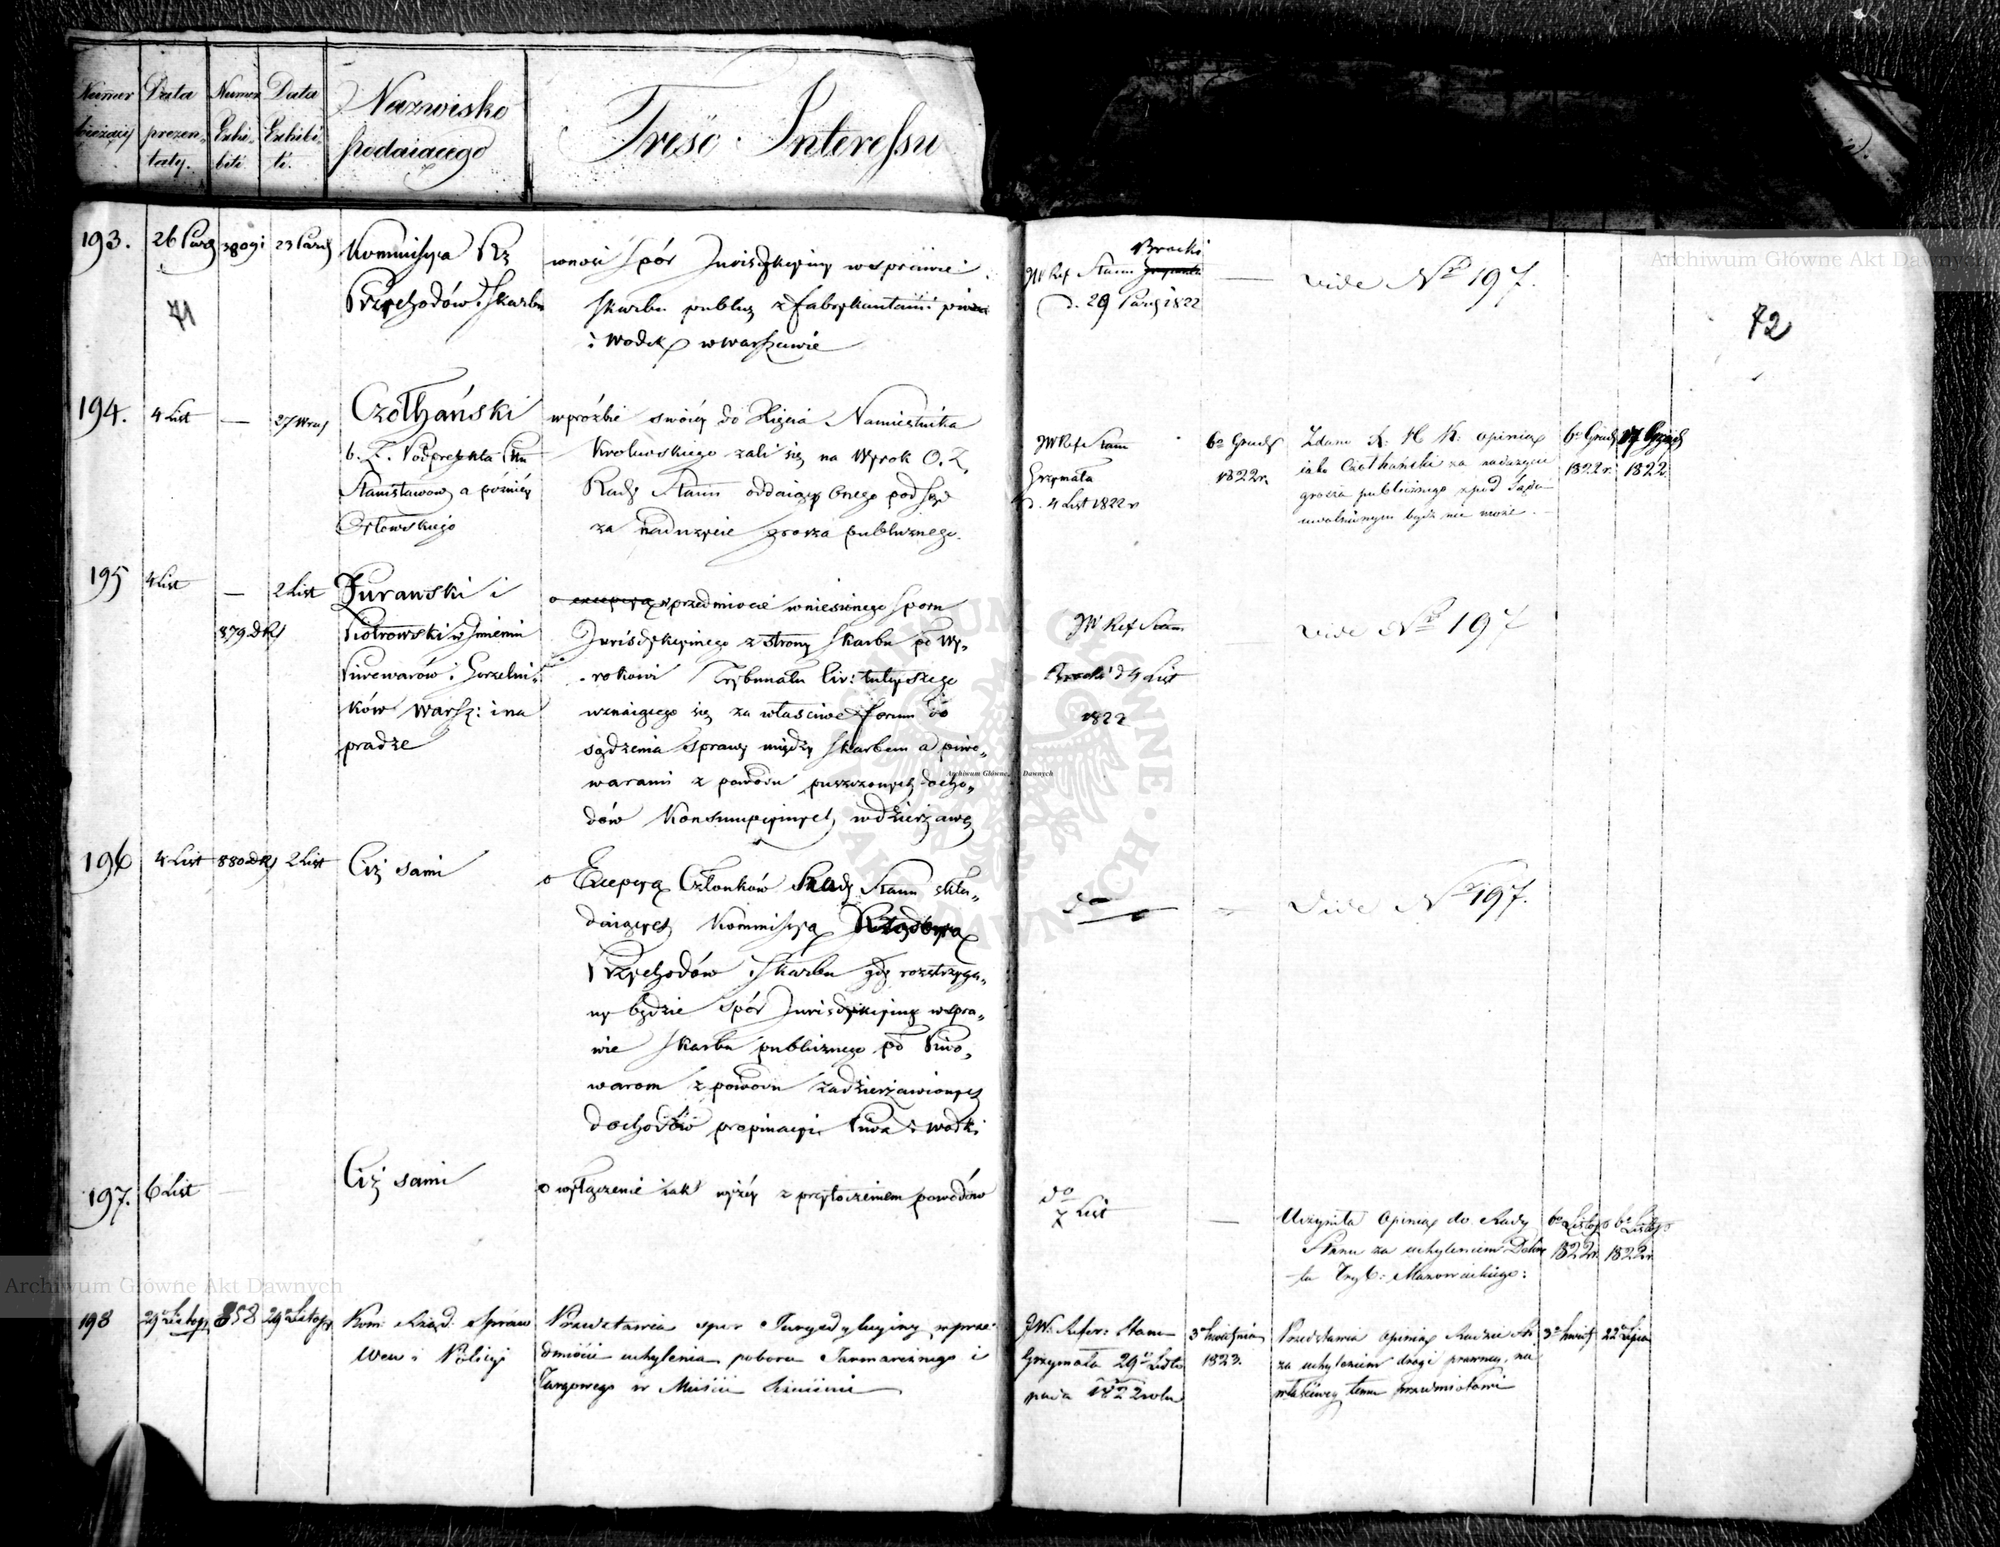 Numer bieżący
Data prezen-
taty.
Numer Exhi-
biti
Data Exhibi-
ti.
Nazwisko
podaiącego
Treść Interessu
193.
26 Paźd
38091
23 Paźd
Kommissya Rz
Przychodów i Skarbu
wnosi spór Jurisdykcyiny w sprawie
Skarbu publicz z fabrykantami piwa
i wodek w Warszawie
71
194.
4 List
—
27 Wrześ
Czołhański
b. Z. Podprefekta Ptu
Stanisławow a poźniey
Orłowskiego
w prośbie swoiey do Xięcia Namiestnika
Krolewskiego żali się na Wyrok O. Z.
Rady Stanu oddaiący onego pod Sąd
za nadużycie grosza publicznego.
195
4 List
—
879 DKs
2 List
Żurawski i
Piotrowski w Jmieniu
Piwowarów i Gorzelni-
ków Warsz: i na
pradze
o excepcyą w przedmiocie wniesionego sporu
Jurisdykcyinego z strony Skarbu po Wy-
rokowi Trybunału Civ: tuteyszego
uznaiącego się za właściwe forum do
sądzenia sprawy między Skarbem a piwo-
warami z powodu puszczonych docho-
dów Konsumpcyinych w dzierżawę
196
4 List
880 DKs
2 List
Ciż sami
o Excepcyą Członków Rady Stanu skła-
daiących Kommissyą Rządową
Przychodów i Skarbu gdy rozstrzyga-
ny będzie spór Jurisdykcyiny w spra-
wie Skarbu publicznego po Piwo-
warom z powodu zadzierżawionych
dochodów propinacyi Piwa i wodki
197.
6 List
—
Ciż sami
o wyłączenie iak wyżey z przytoczeniem powodów
198
29 Listop
858
29 Listop
Kom: Rząd. Spraw
Wew: i Policyi
Przedstawia spor Jurysdykcyiny w prze-
dmiocie uchylenia poboru Jarmarcznego i
Targowego w Mieście
Bracki
JW Ref Stanu Grzymała
d. 29 Paźd 1822
—
vide No 197.
72
JW Ref Stanu
Grzymała
d. 4 List 1822 r
6o Grud
1822 r.
Zdano R. H K: opinią
iako Czołhański za nadużycie
grosza publicznego z pod Sądu
uwolnionym bydz nie może.
6o Grud
1822 r.
17 Grud
1822
JW Ref Stanu
Bracki d 4 List
1822
vide No 197
do
—
Vide No 197.
do
7 List
—
Uczynita Opinią do Rady
Stanu za uchyleniem Dekre-
tu Tryb: Mazowieckiego:
6o Listop
1822 r.
6o Listop
1822 r.
JW. Refer: Stanu
Grzymała 29o Listo-
pada 1822 roku
3o Kwietnia
1823.
Przedstawia opinią Radzie St:
za uchyleniem drogi prawney, na
właściwey temu przedmiotowi
3o Kwiet
22o Lipca
Archiwum Główne Akt Dawnych
Archiwum Główne Akt Dawnych
Archiwum Główne Akt Dawnych
ARCHIWUM GŁÓWNE AKT DAWNYCH